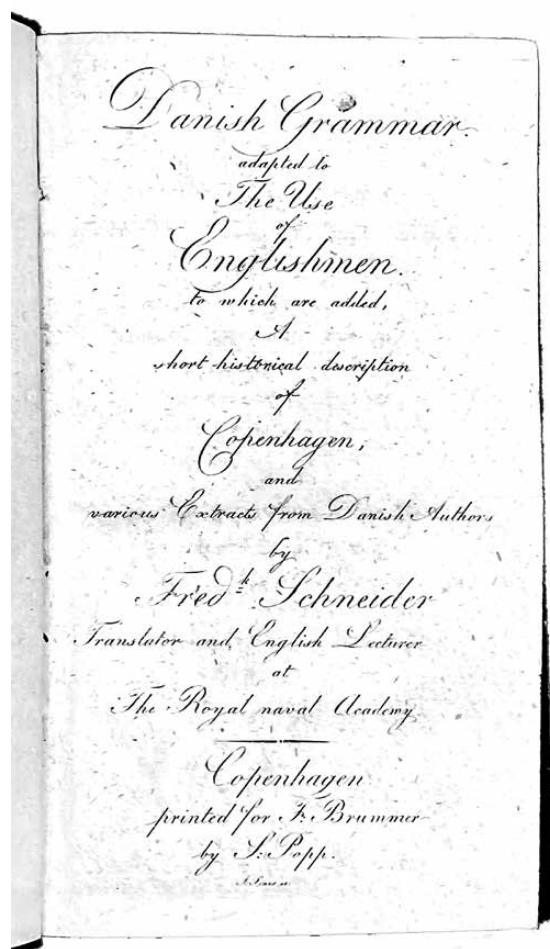 Danish Grammar.
adapted to
The Use
of
Englishmen.
to which are added,
A
short historical description
of
Copenhagen,
and
various Extracts from Danish Authors
by
Fred.k Schneider
Translator and English Lecturer
at
The Royal naval Academy
Copenhagen
printed for F: Brummer
by S: Popp.